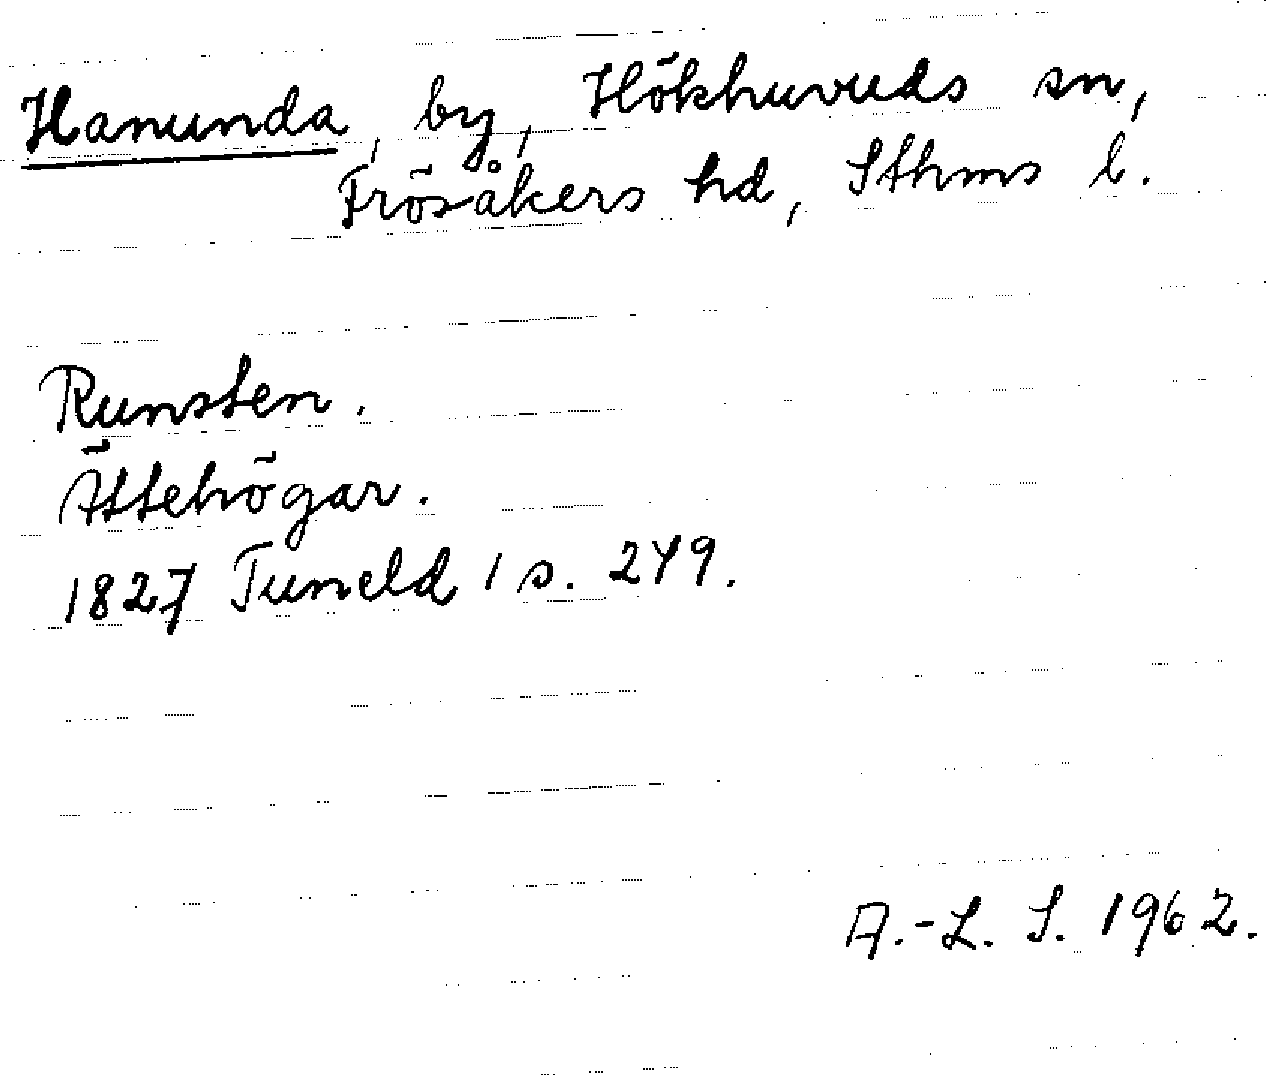 Hanunda, by, Hökhuvuds sn,
Frösåkers hd, Sthms l.
Runsten.
Ättehögar.
1827 Tuneld 1 s. 249.
A.-L. S. 1962.